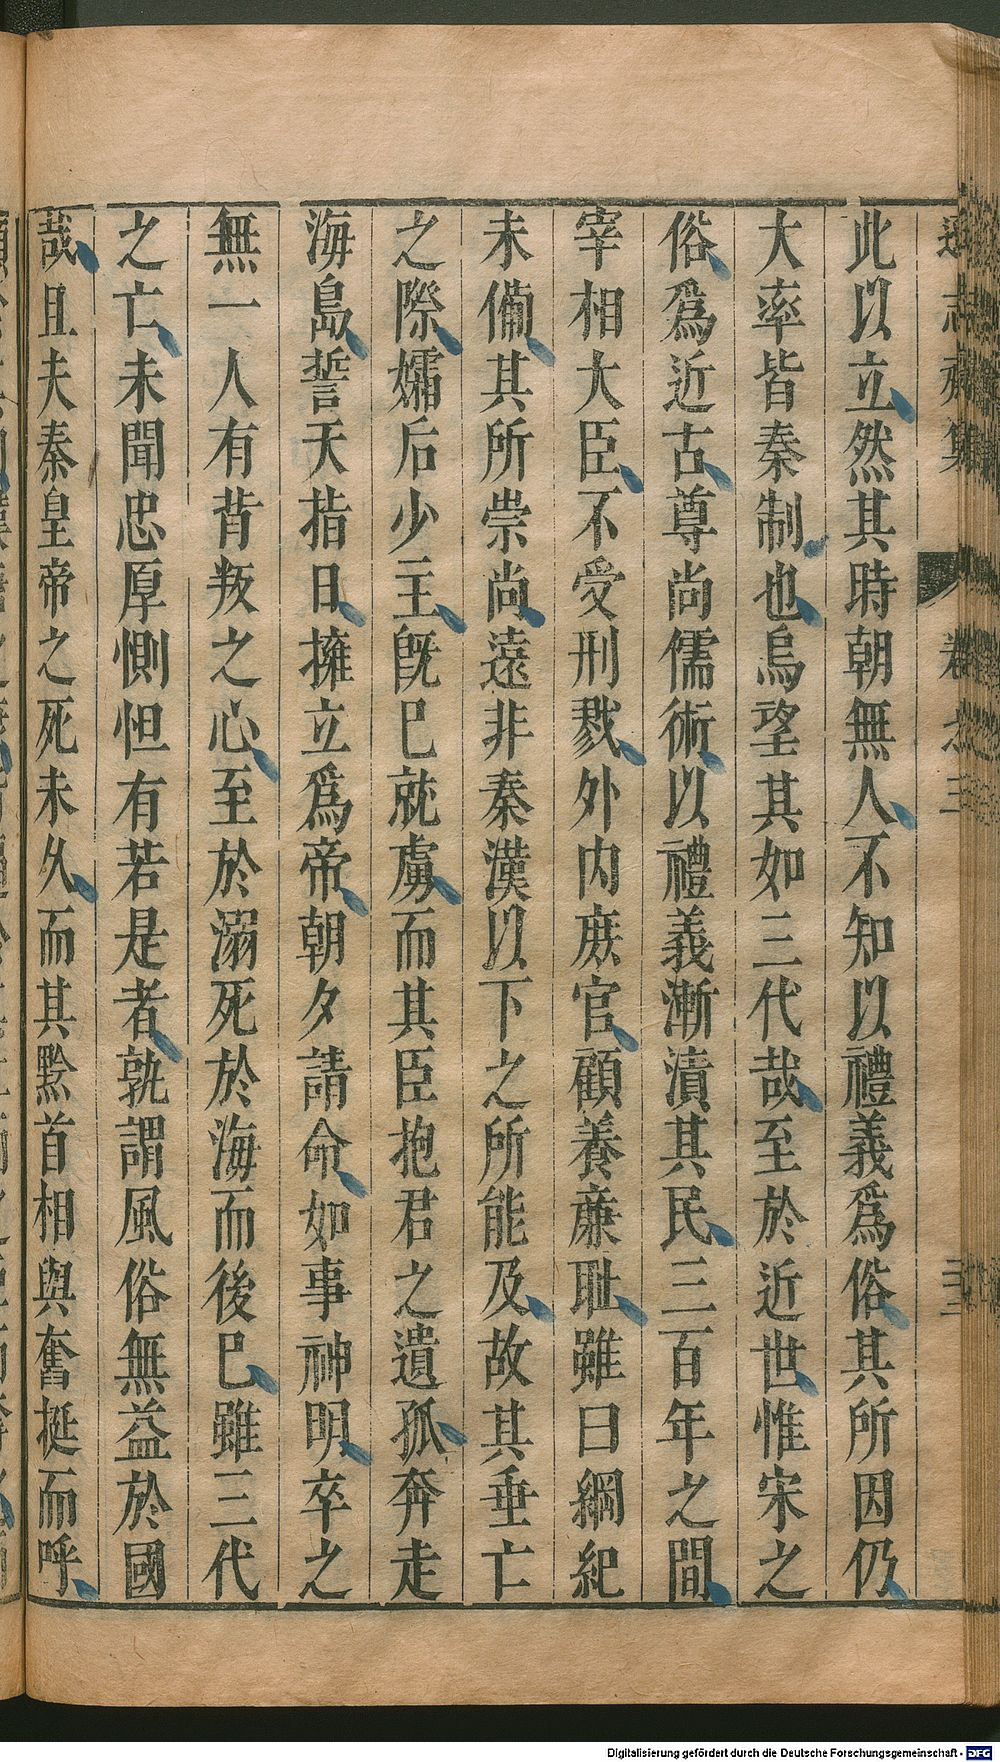 此以立然其時朝無人不知以禮義爲俗其所因仍
大率皆秦制也烏望其如三代哉至於近世惟宋之
俗爲近古尊尚儒術以禮義漸漬其民三百年之間
宰相大臣不受刑戮外内庶官顧養亷耻雖曰綱紀
未備其所崇尚遠非秦漢以下之所能及故其垂亡
之際孀后少主旣已就虜而其臣抱君之遺孤奔走
海島誓天指日擁立爲帝朝夕請命如事神明卒之
無一人有背叛之心至於溺死於海而後已雖三代
之亡未聞忠厚惻怛有若是者孰謂風俗無益於國
哉且夫秦皇帝之死未久而其黔首相與奮挺而呼
Digitalisierung gefördert durch die Deutsche Forschungsgemeinschaft - DFG